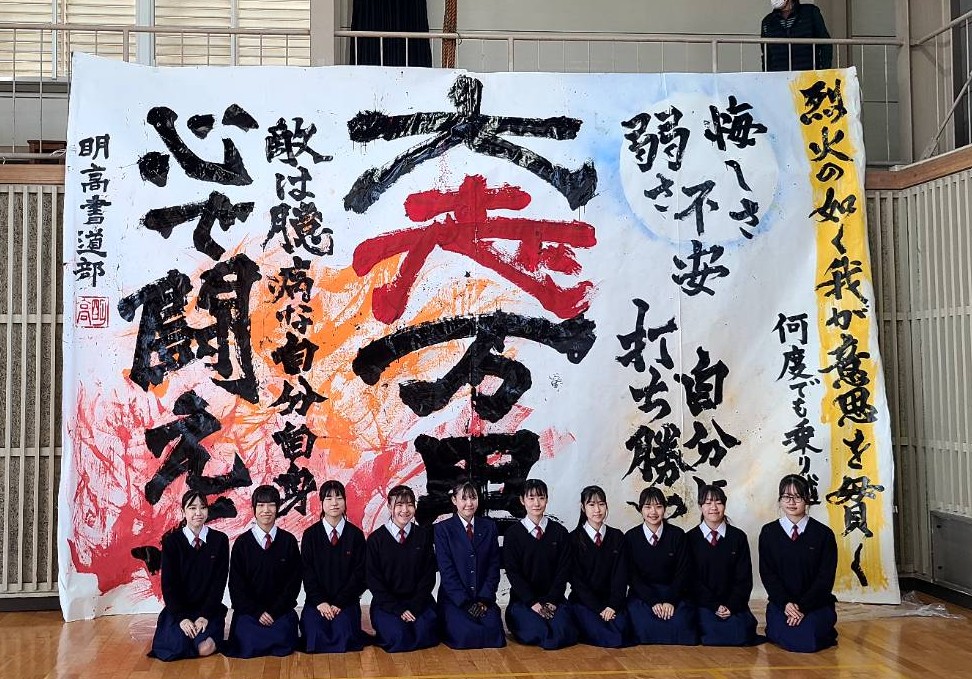 烈火の如く我が意思を貫く
何度でも乗り越
悔しさ
不安
弱さ
自分
打ち勝
万里
敵は臆病な自分自身
心で闘え
明高書道部
明高